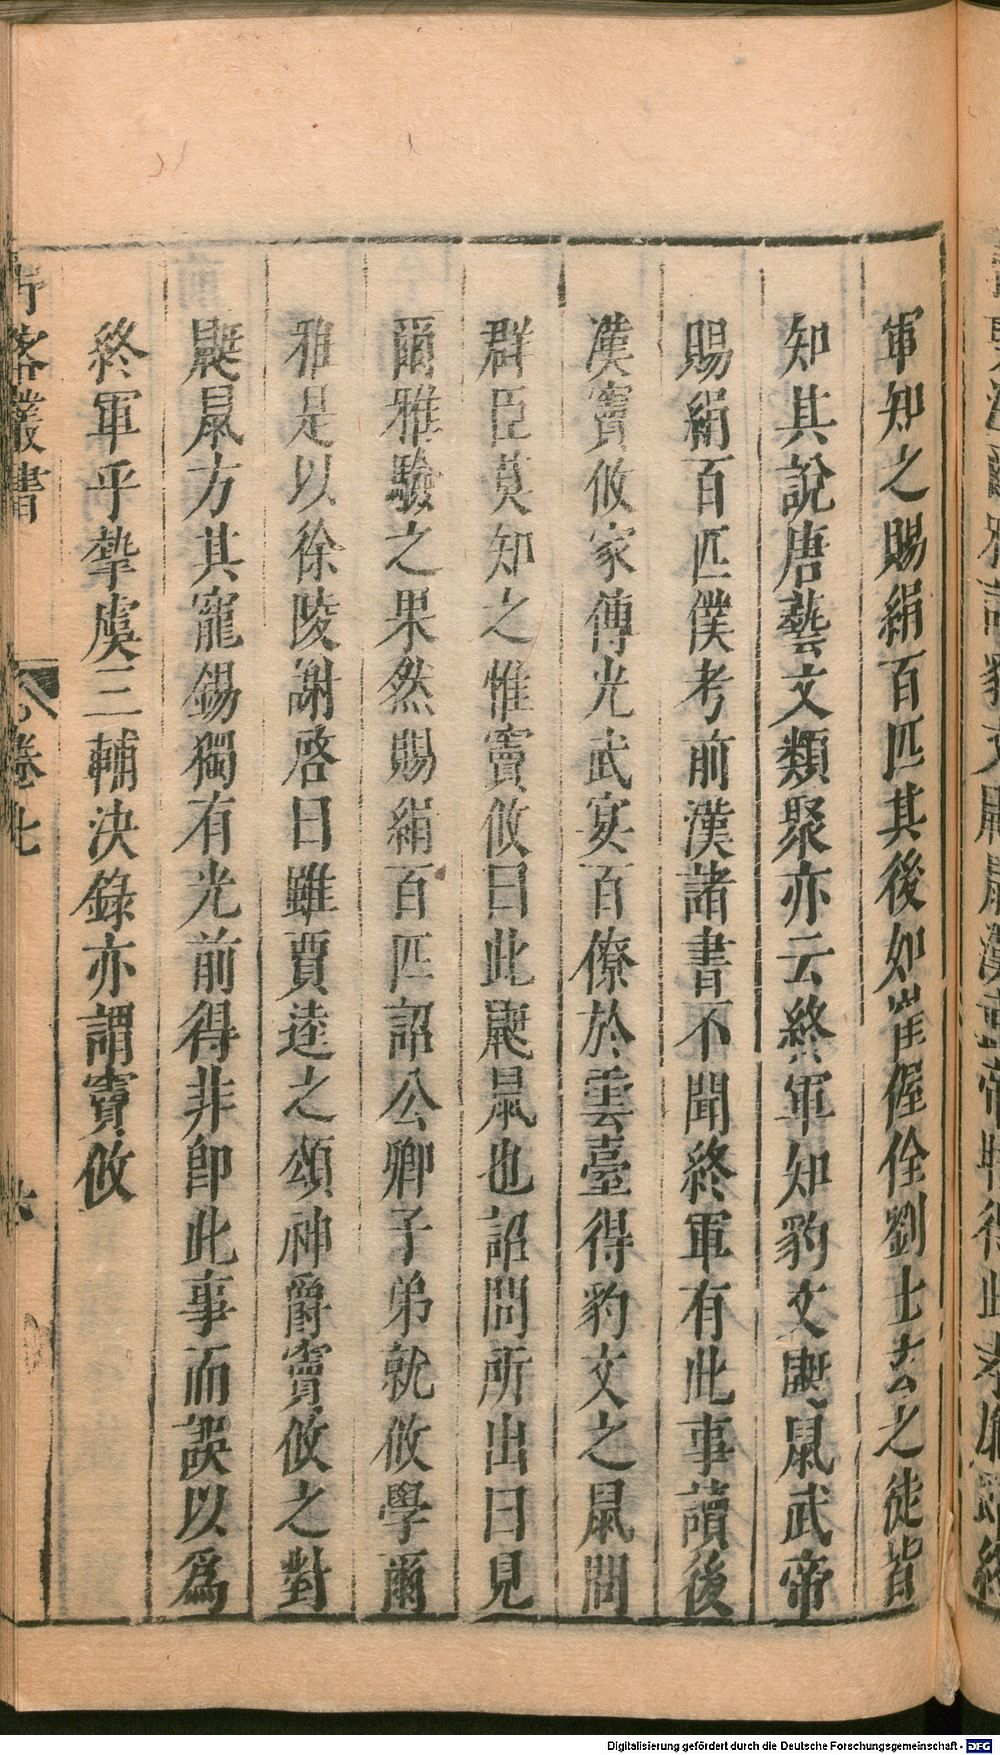 軍知之賜絹百匹其後如崔偓佺劉士玄之徒皆
知其說唐藝文類聚亦云終軍知豹文鼮鼠武帝
賜絹百匹僕考前漢諸書不聞終軍有此事讀後
漢竇攸家傳光武宴百僚於雲臺得豹文之鼠問
群臣莫知之惟竇攸曰此鼮鼠也詔問所出曰見
爾雅驗之果然賜絹百匹詔公卿子弟就攸學爾
雅是以徐陵謝啓曰雖賈逵之頌神爵竇攸之對
鼮鼠方其寵錫獨有光前得非即此事而誤以為
終軍乎摯虞三輔決錄亦謂竇攸
野客叢書
卷七
六
Digitalisierung gefördert durch die Deutsche Forschungsgemeinschaft - DFG